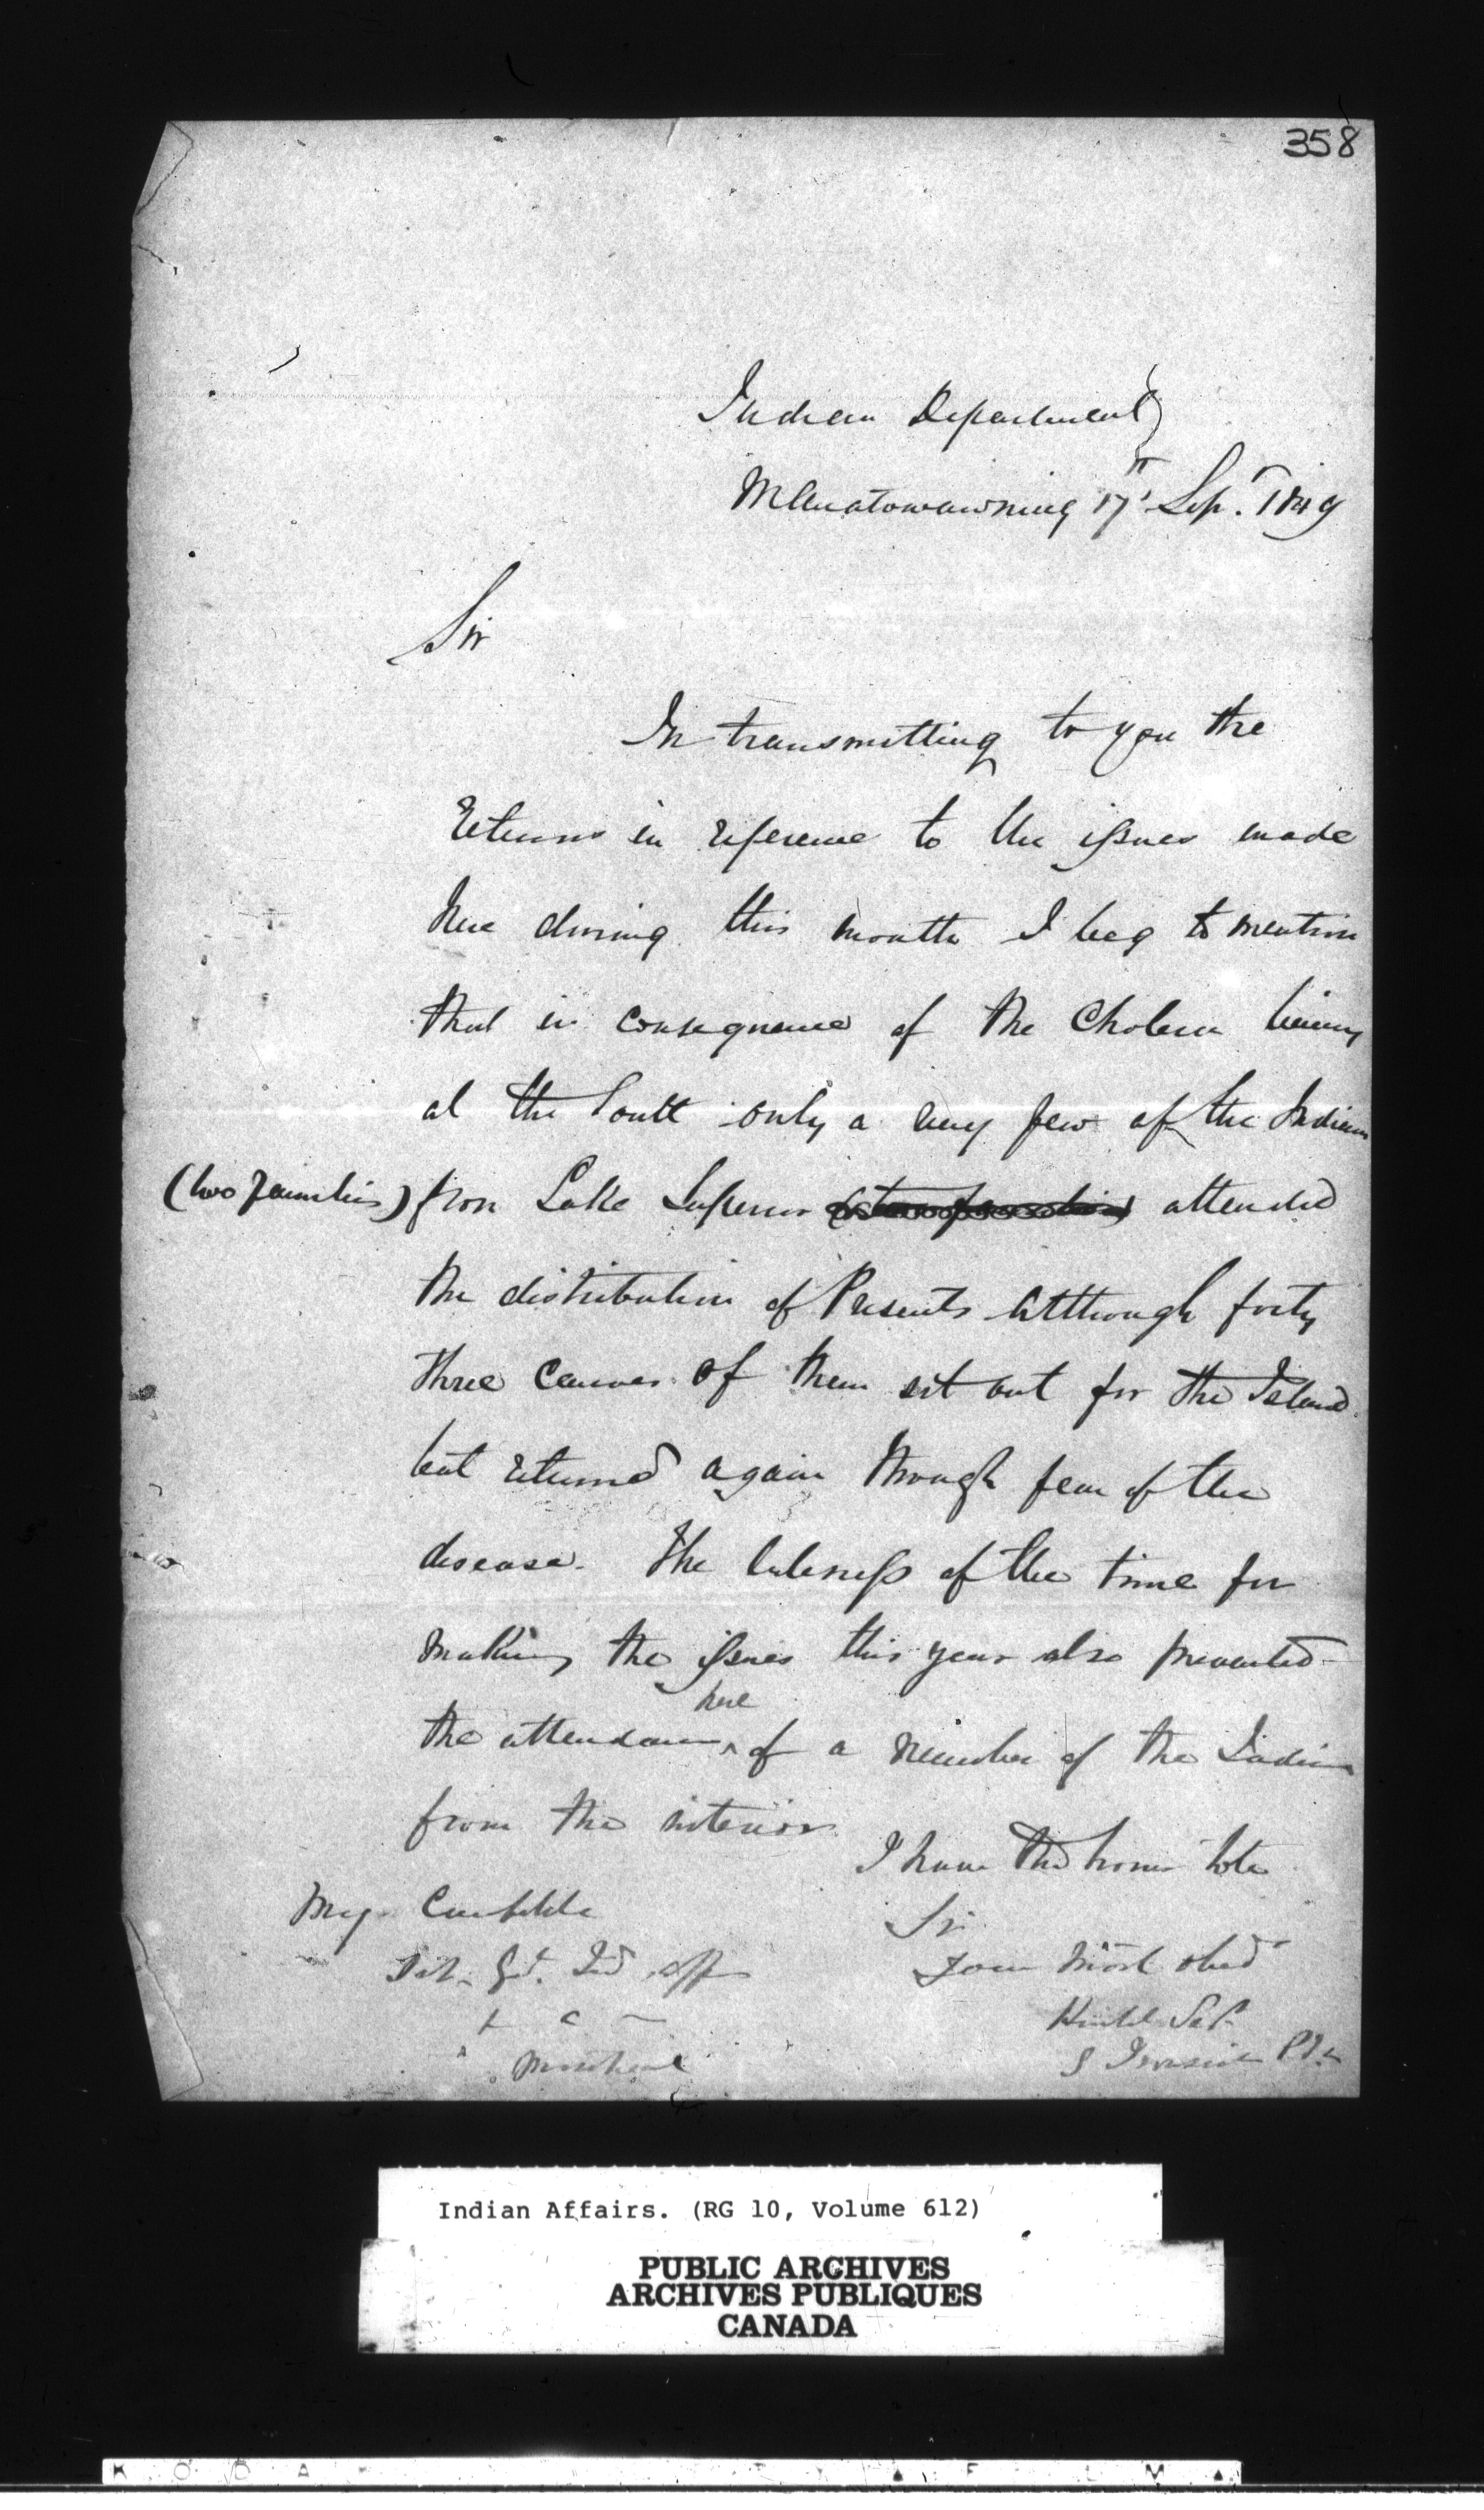 358
Indian Department
Manatowawning 17th Sep. 1849
Sir
In transmitting to you the
Returns in reference to the issues made
here during this month I beg to mention
that in consequence of the Cholera being
at the Sault only a very few of the Indians
(two families) from Lake Superior attended
the distribution of Presents Although forty
three canoes of them set out for the Island
but returned again through fear of the
disease. The lateness of the time for
making the issues this year also prevented
the attendance here of a number of the Indians
from the interior.
I have the honor to be
Sir
Your most obed
Humbl Sert
Maj Campbell
Montreal
Indian Affairs. (RG 10, Volume 612)
PUBLIC ARCHIVES
ARCHIVES PUBLIQUES
CANADA